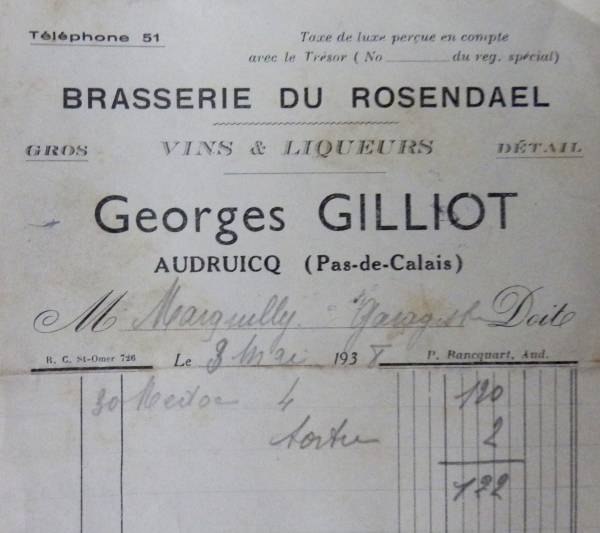 Téléphone 51
Taxe de luxe perçue en compte
avec le Trésor ( No du reg. spécial)
BRASSERIE DU ROSENDAEL
GROS VINS & LIQUEURS DÉTAIL
Georges GILLIOT
AUDRUICQ (Pas-de-Calais)
M Marquilly Garagiste Doit
R. C. St-Omer 726 Le 3 Mai 1938 P. Rancquart, Aud.
30 4 120
2
122